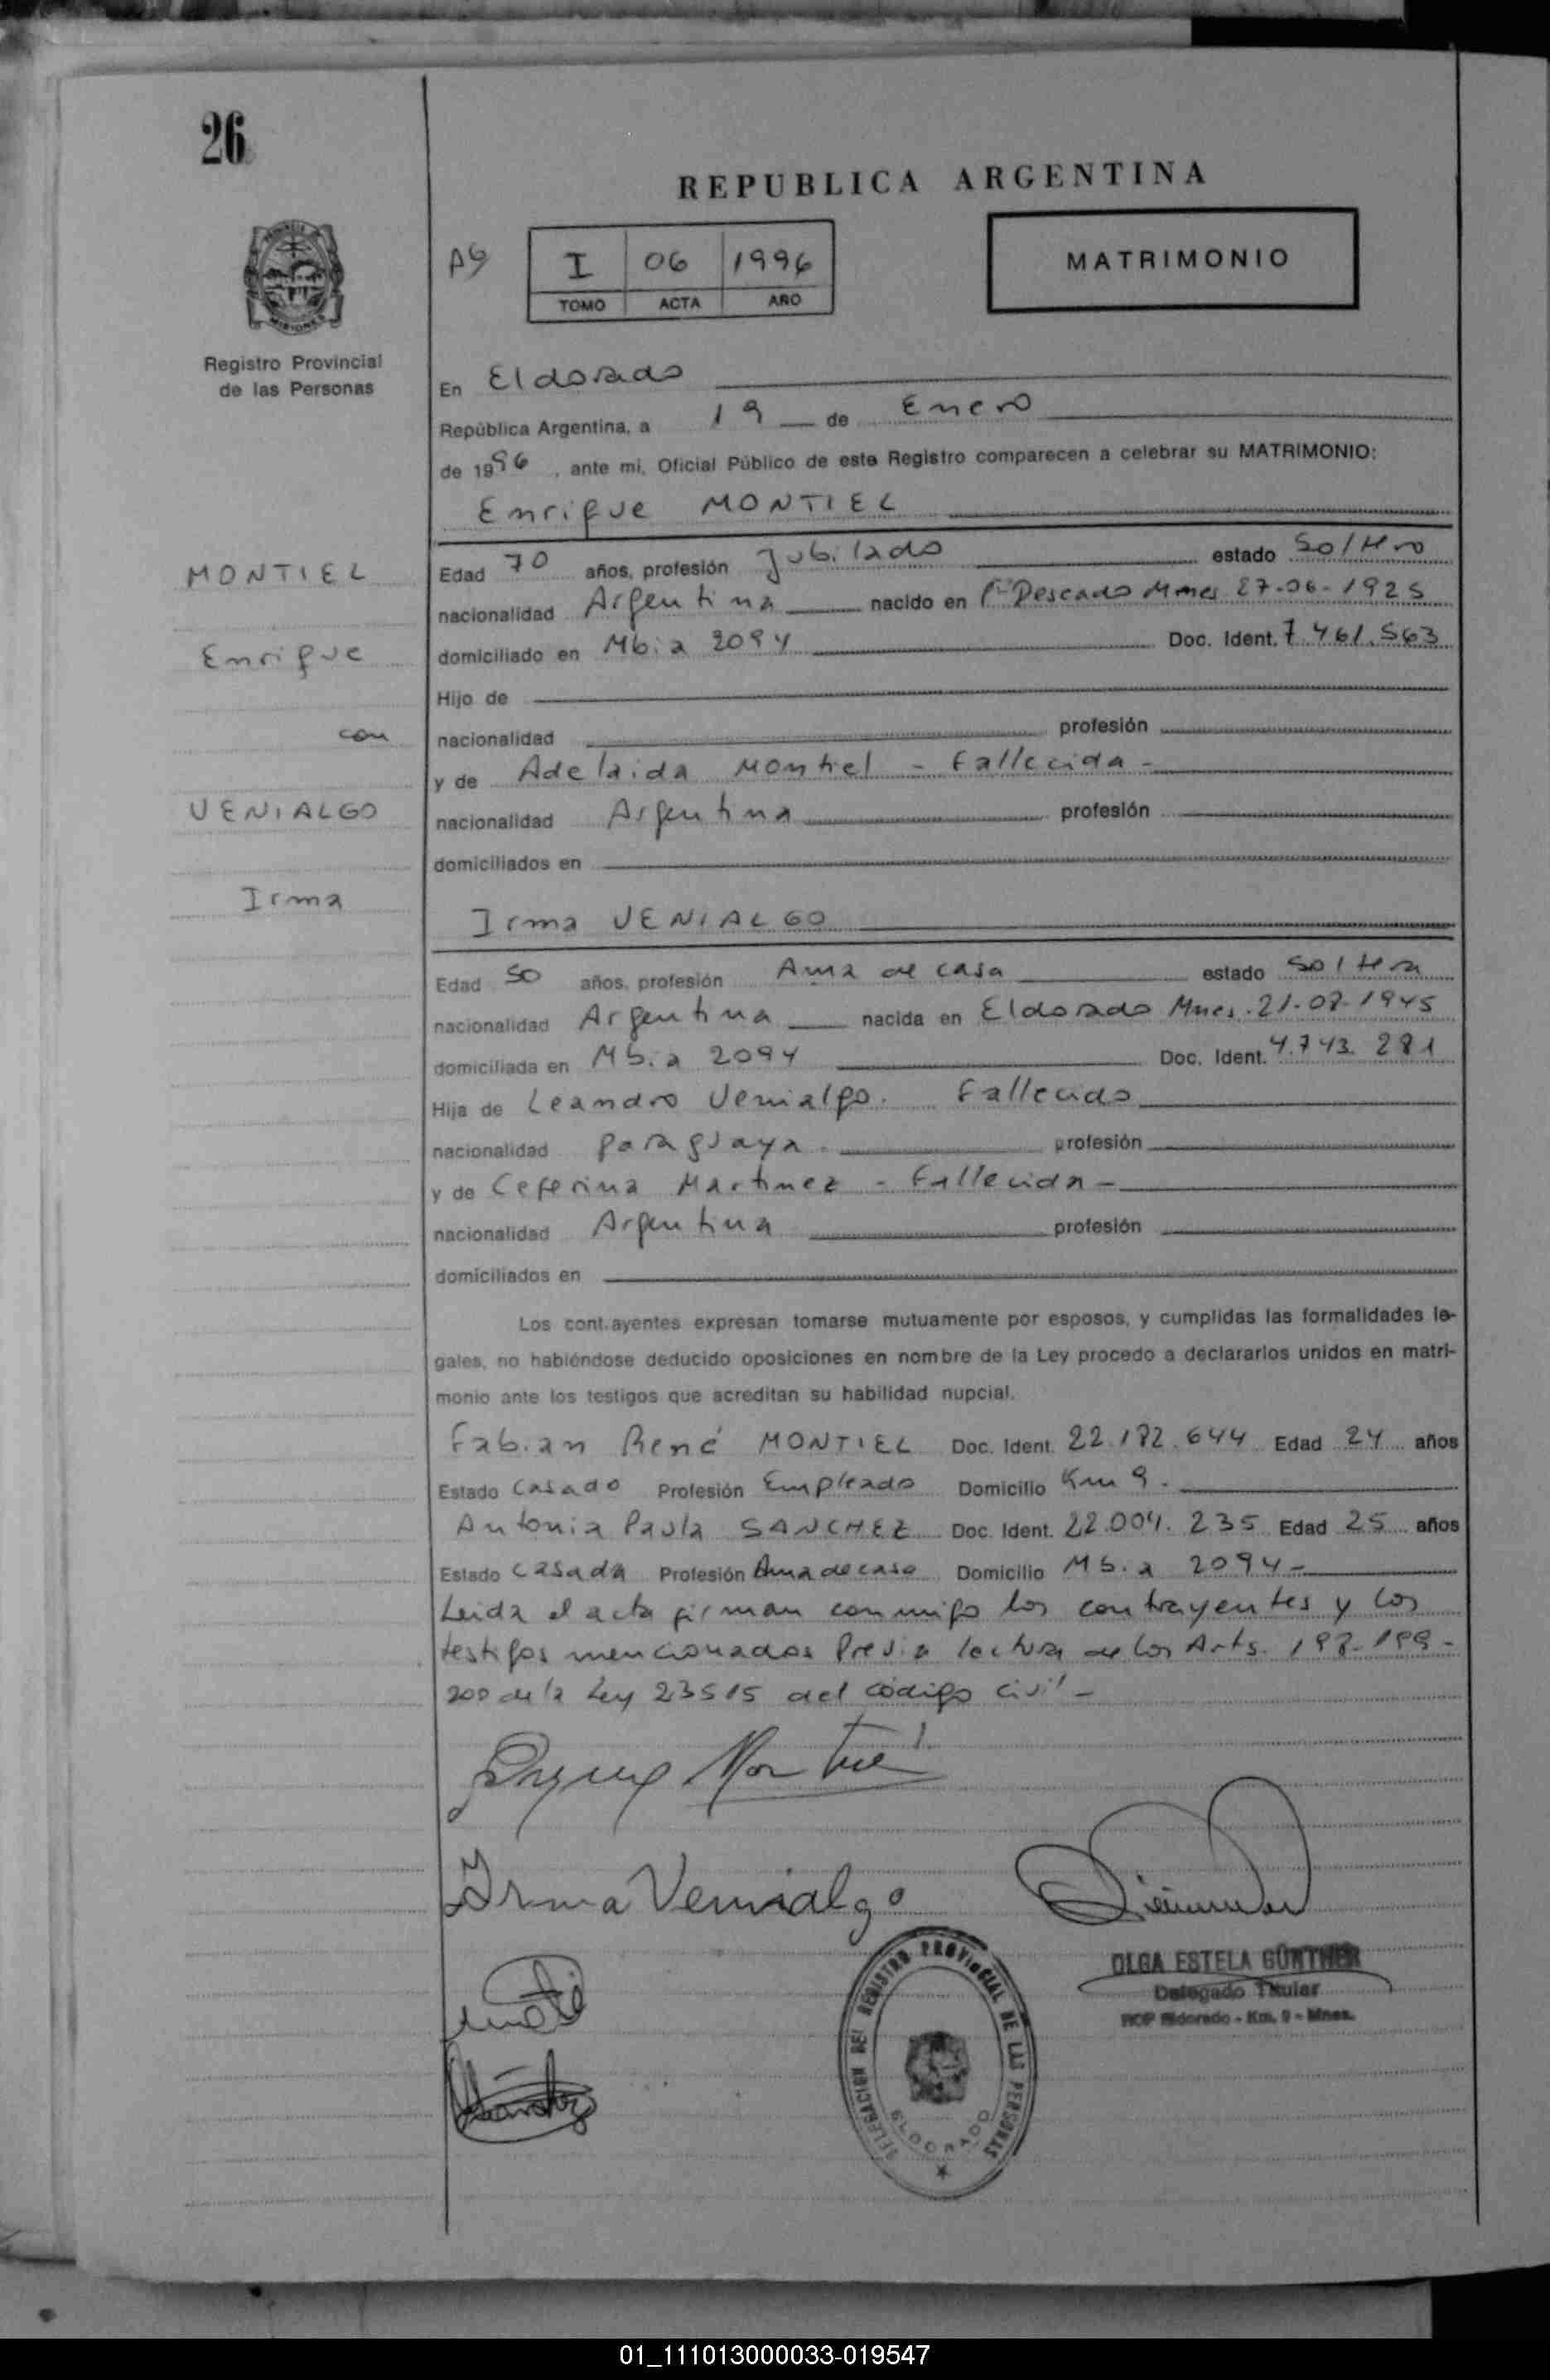 26
REPUBLICA ARGENTINA
I 06 1996
TOMO ACTA AÑO
MATRIMONIO
Registro Provincial
de las Personas
En Eldorado
República Argentina, a 19 de Enero
de 1996, ante mi, Oficial Público de este Registro comparecen a celebrar su MATRIMONIO:
Enrique MONTIEL
MONTIEL
Enrique
con
VENIALGO
Irma
Edad 70 años, profesión Jubilado estado Soltero
nacionalidad Argentina nacido en Pto Deseado Mnes 27-06-1925
domiciliado en Mbia 2094 Doc. Ident. 7.461.563
Hijo de
nacionalidad profesión
y de Adelaida Montiel - Fallecida -
nacionalidad Argentina profesión
domiciliados en
Irma VENIALGO
Edad 50 años, profesión Ama de casa estado Soltera
nacionalidad Argentina nacida en Eldorado Mnes. 21-07-1945
domiciliada en Mbia 2094 Doc. Ident. 4.743.281
Hija de Leandro Venialgo. Fallecido
nacionalidad paraguaya. profesión
y de Ceferina Martinez - Fallecida -
nacionalidad Argentina profesión
domiciliados en
Los cont.ayentes expresan tomarse mutuamente por esposos, y cumplidas las formalidades le-
gales, no habiéndose deducido oposiciones en nombre de la Ley procedo a declararlos unidos en matri-
monio ante los testigos que acreditan su habilidad nupcial.
Fabian René MONTIEL Doc. Ident. 22.182.644 Edad 24 años
Estado Casado Profesión Empleado Domicilio Km 9.
Antonia Paula SANCHEZ Doc. Ident. 22.004.235 Edad 25 años
Estado Casada Profesión Ama de casa Domicilio Mbia 2094-
Leida el acta firman conmigo los contrayentes y los
testigos mencionados Previa lectura de los Arts. 198-199-
200 de la Ley 23515 del código civil-
Enrique Montiel
Irma Venialgo
OLGA ESTELA GÜNTHER
Delegado Titular
RCP Eldorado - Km. 9 - Mnes.
DELEGACION DEL REGISTRO PROVINCIAL DE LAS PERSONAS
ELDORADO
01_111013000033-019547